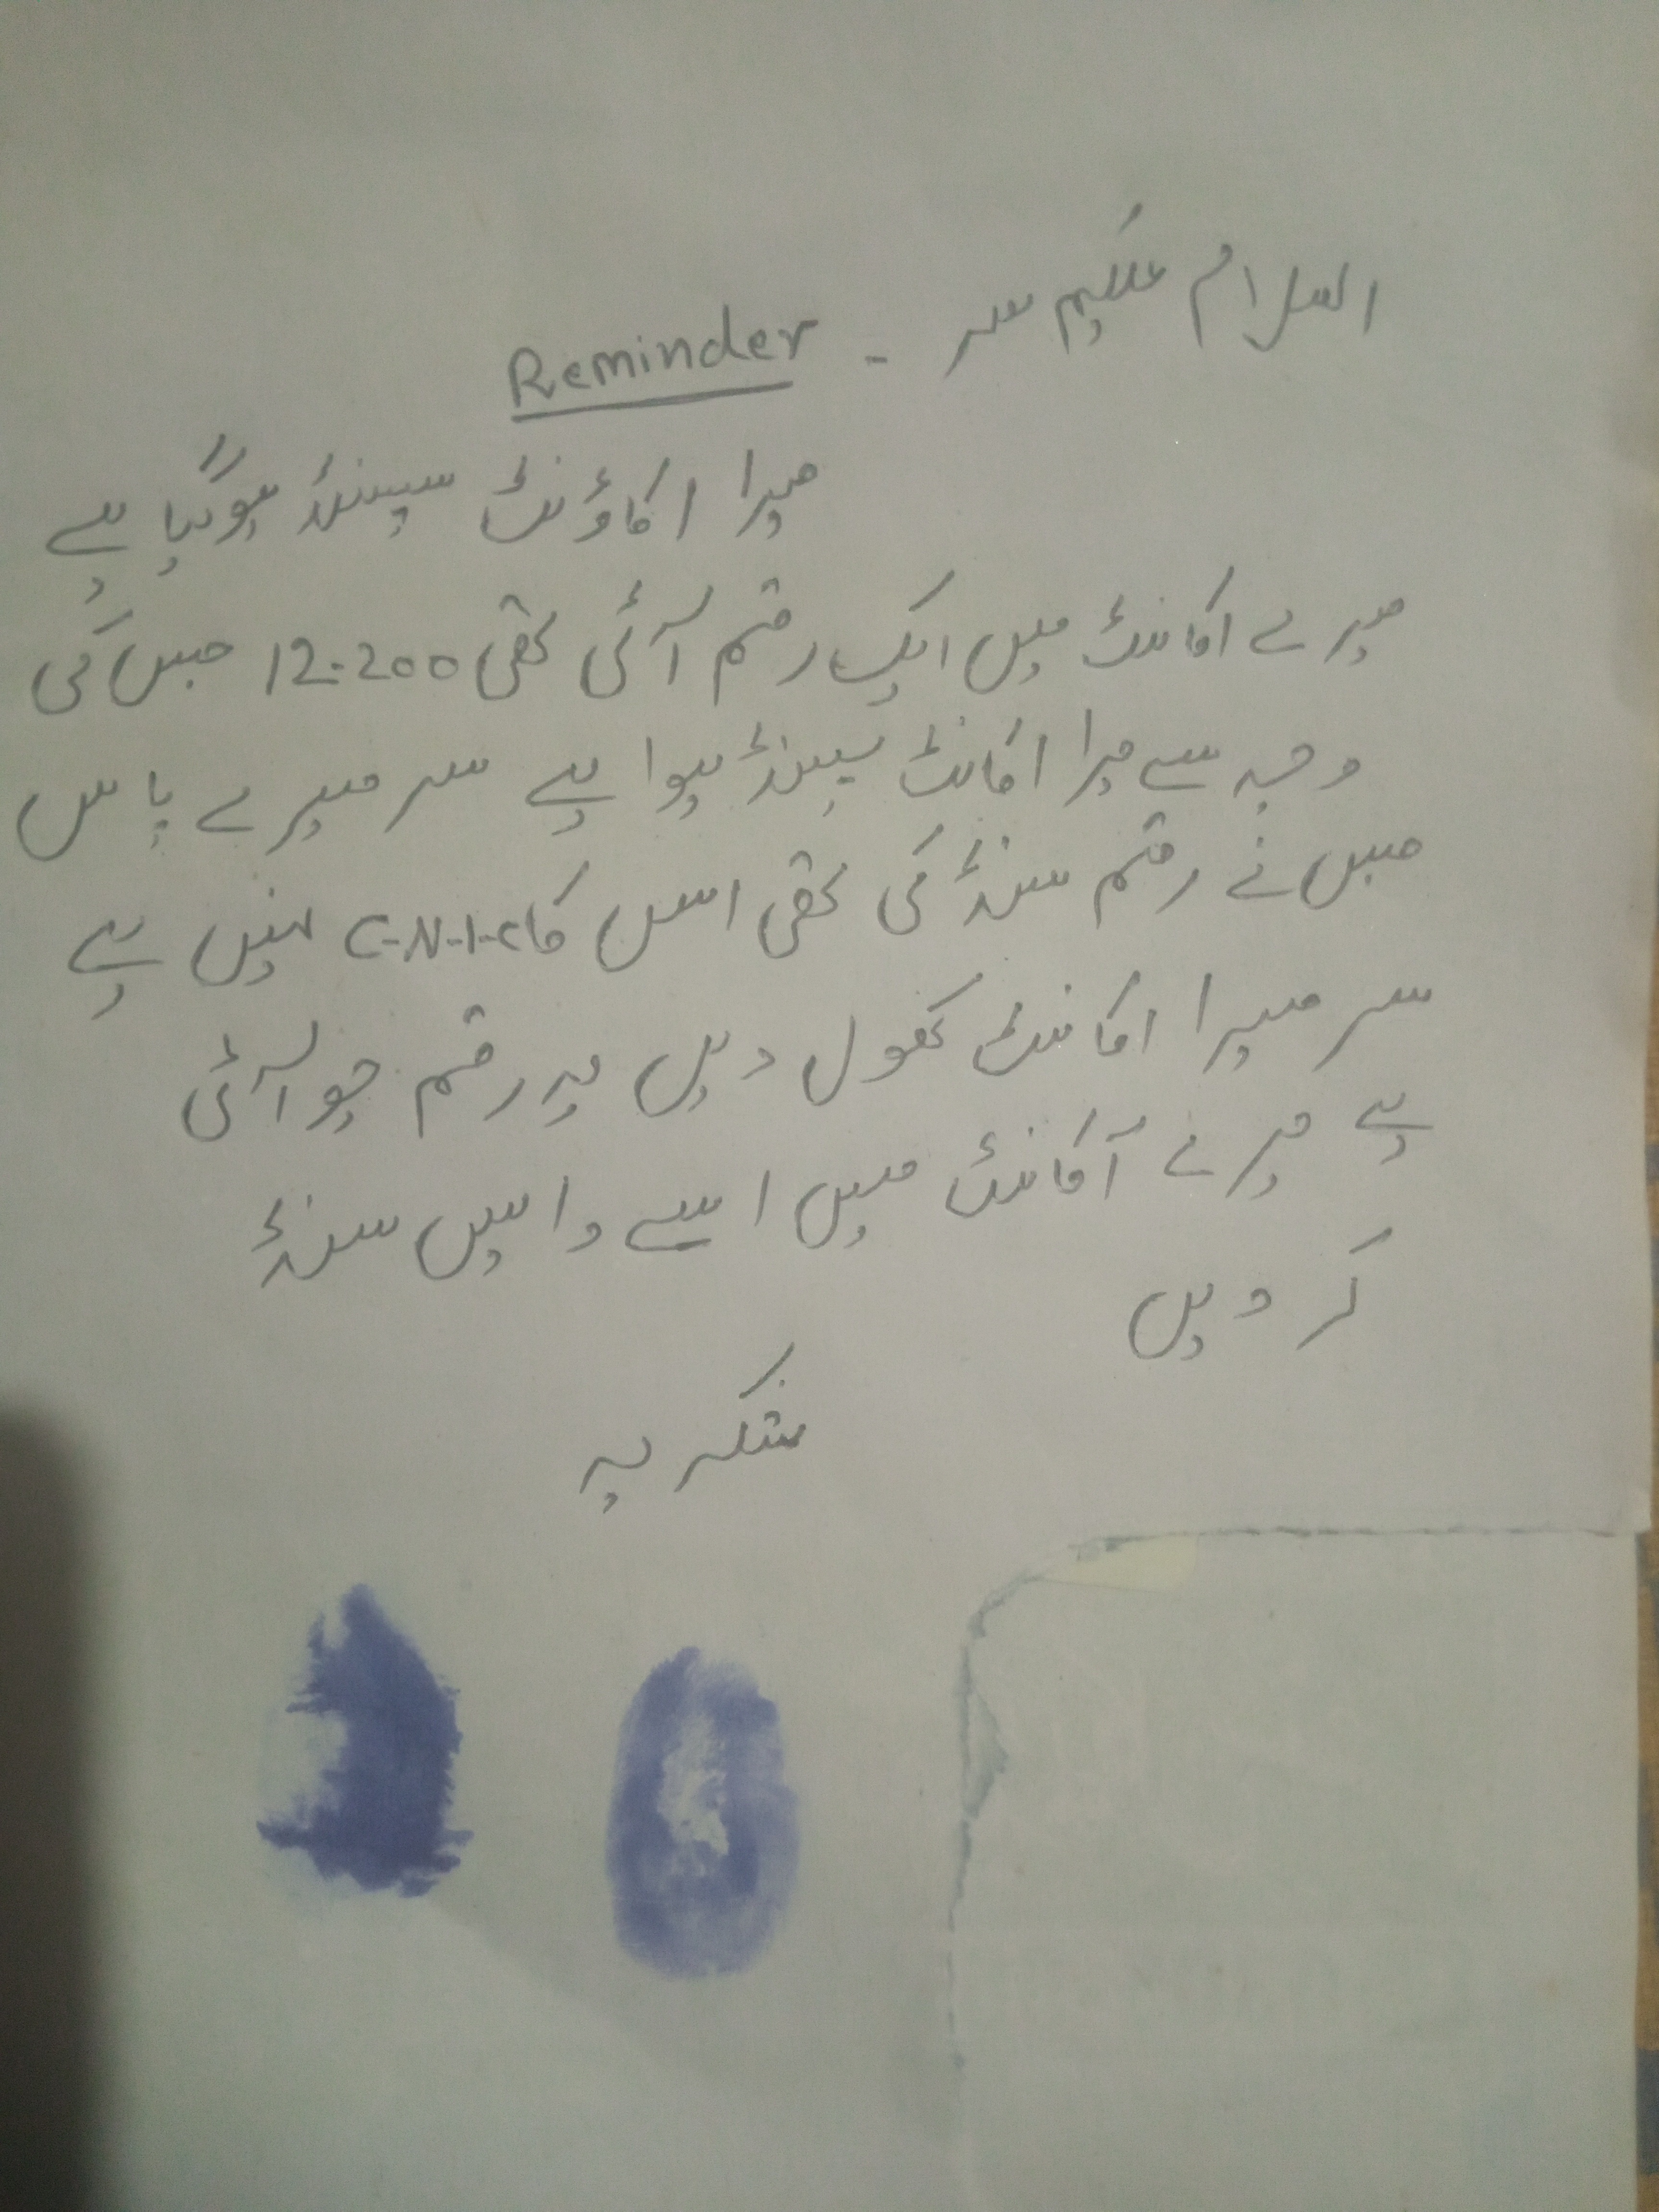 السلام علیکم سر - Reminder
میرا اکاؤنٹ سپینڈ ہوگیا ہے
میرے اکانٹ میں ایک رقم آئی تھی 12.200 جس کی
وجہ سے میرا اکانٹ سپینڈ ہوا ہے سر میرے پاس
جس نے رقم سنڈ کی تھی اس کا C-N-I-C نہیں ہے
سر میرا اکانٹ کھول دیں یہ رقم جو آئی
ہے میرے آکانٹ میں اسے واپس سنڈ
کر دیں
شکریہ